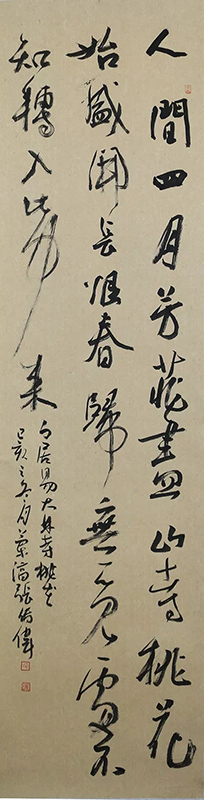 人間四月芳菲盡山寺桃花
始盛開長恨春歸無覓處不
知轉入此中來
白居易大林寺桃花
己亥之冬月張偉